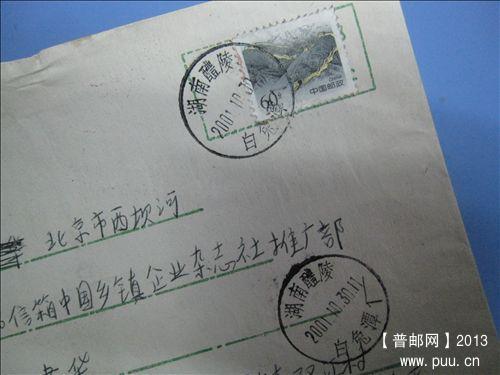 中国邮政
湖南醴陵
2001.10.30.
白兔潭
北京市西坝河
信箱中国乡镇企业杂志社推广部
湖南醴陵
2001.10.30.17
白兔潭
【普邮网】2013
www.puu.cn